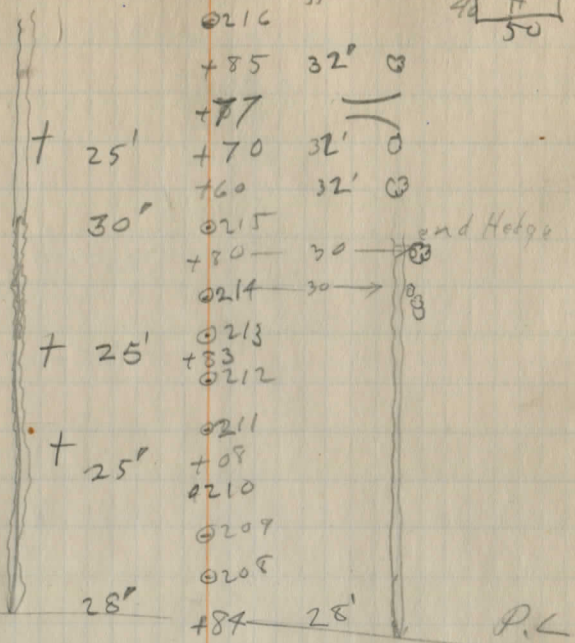 216 40 H
+85 32" 50
+77
+ 25' +70 32'
+60 32'
30" 215
end Hedge
+80 30
214 30
213
+ 25' +83
212
211
+ 25" +08
210
209
208
28" +84 28' P.C